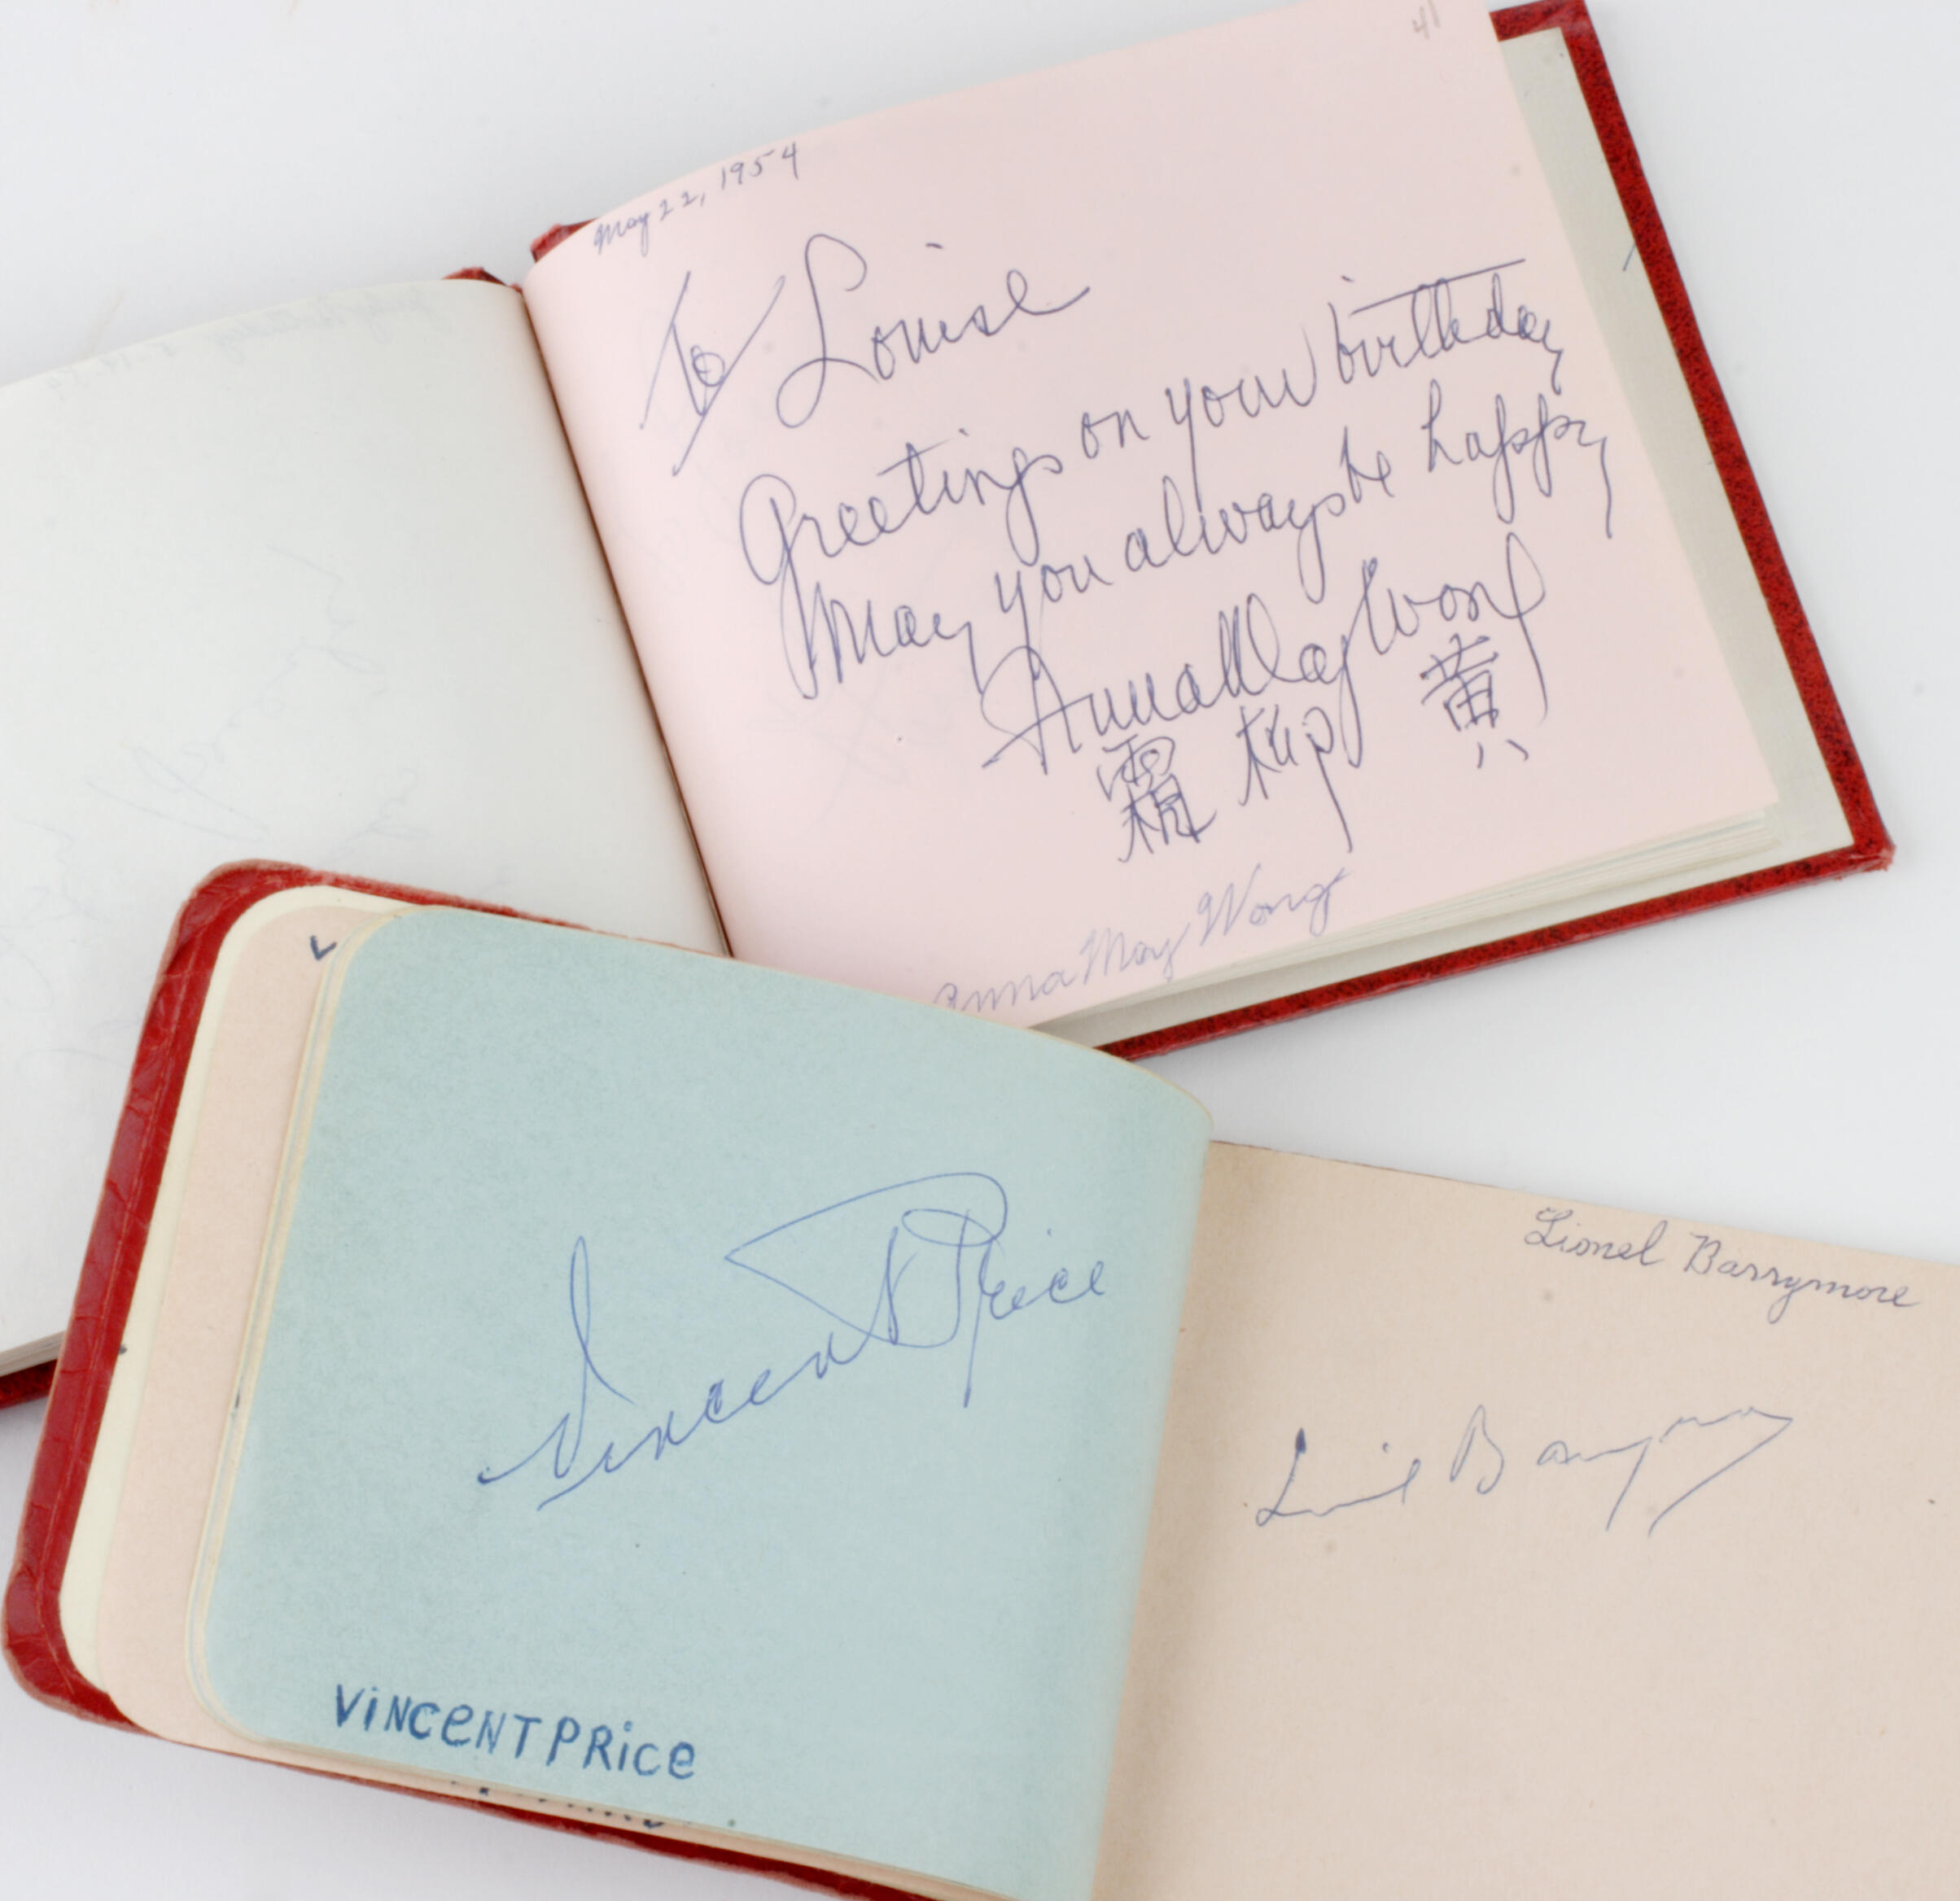 41
May 22, 1954
To Louise
Greetings on your birthday
May you always be happy
Anna May Wong
霜 柳 黄
Anna May Wong
Vincent Price
VINCENT PRICE
Lionel Barrymore
Lionel Barrymore